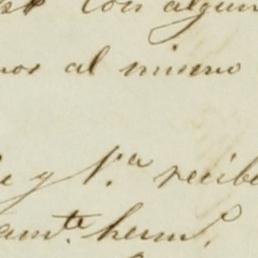 con algun
al mismo
y V.ª recibe
am.te herm.º